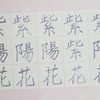 紫陽花
紫陽花
紫陽花
紫陽花